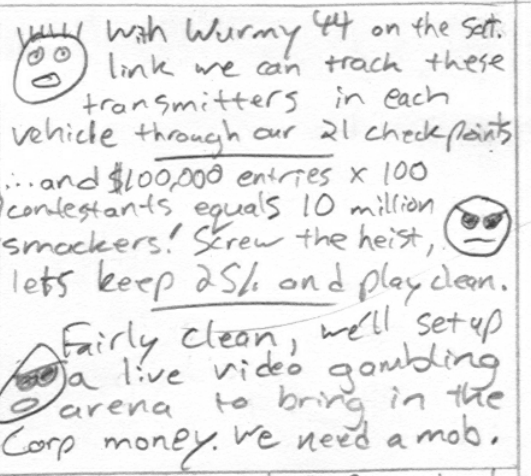 With Wurmy 44 on the Sat.
link we can track these
transmitters in each
vehicle through our 21 checkpoints
...and $100,000 entries x 100
contestants equals 10 million
smackers! Screw the heist,
lets keep 25% and play clean.
Fairly clean, we'll setup
a live video gambling
arena to bring in the
Corp money. We need a mob.